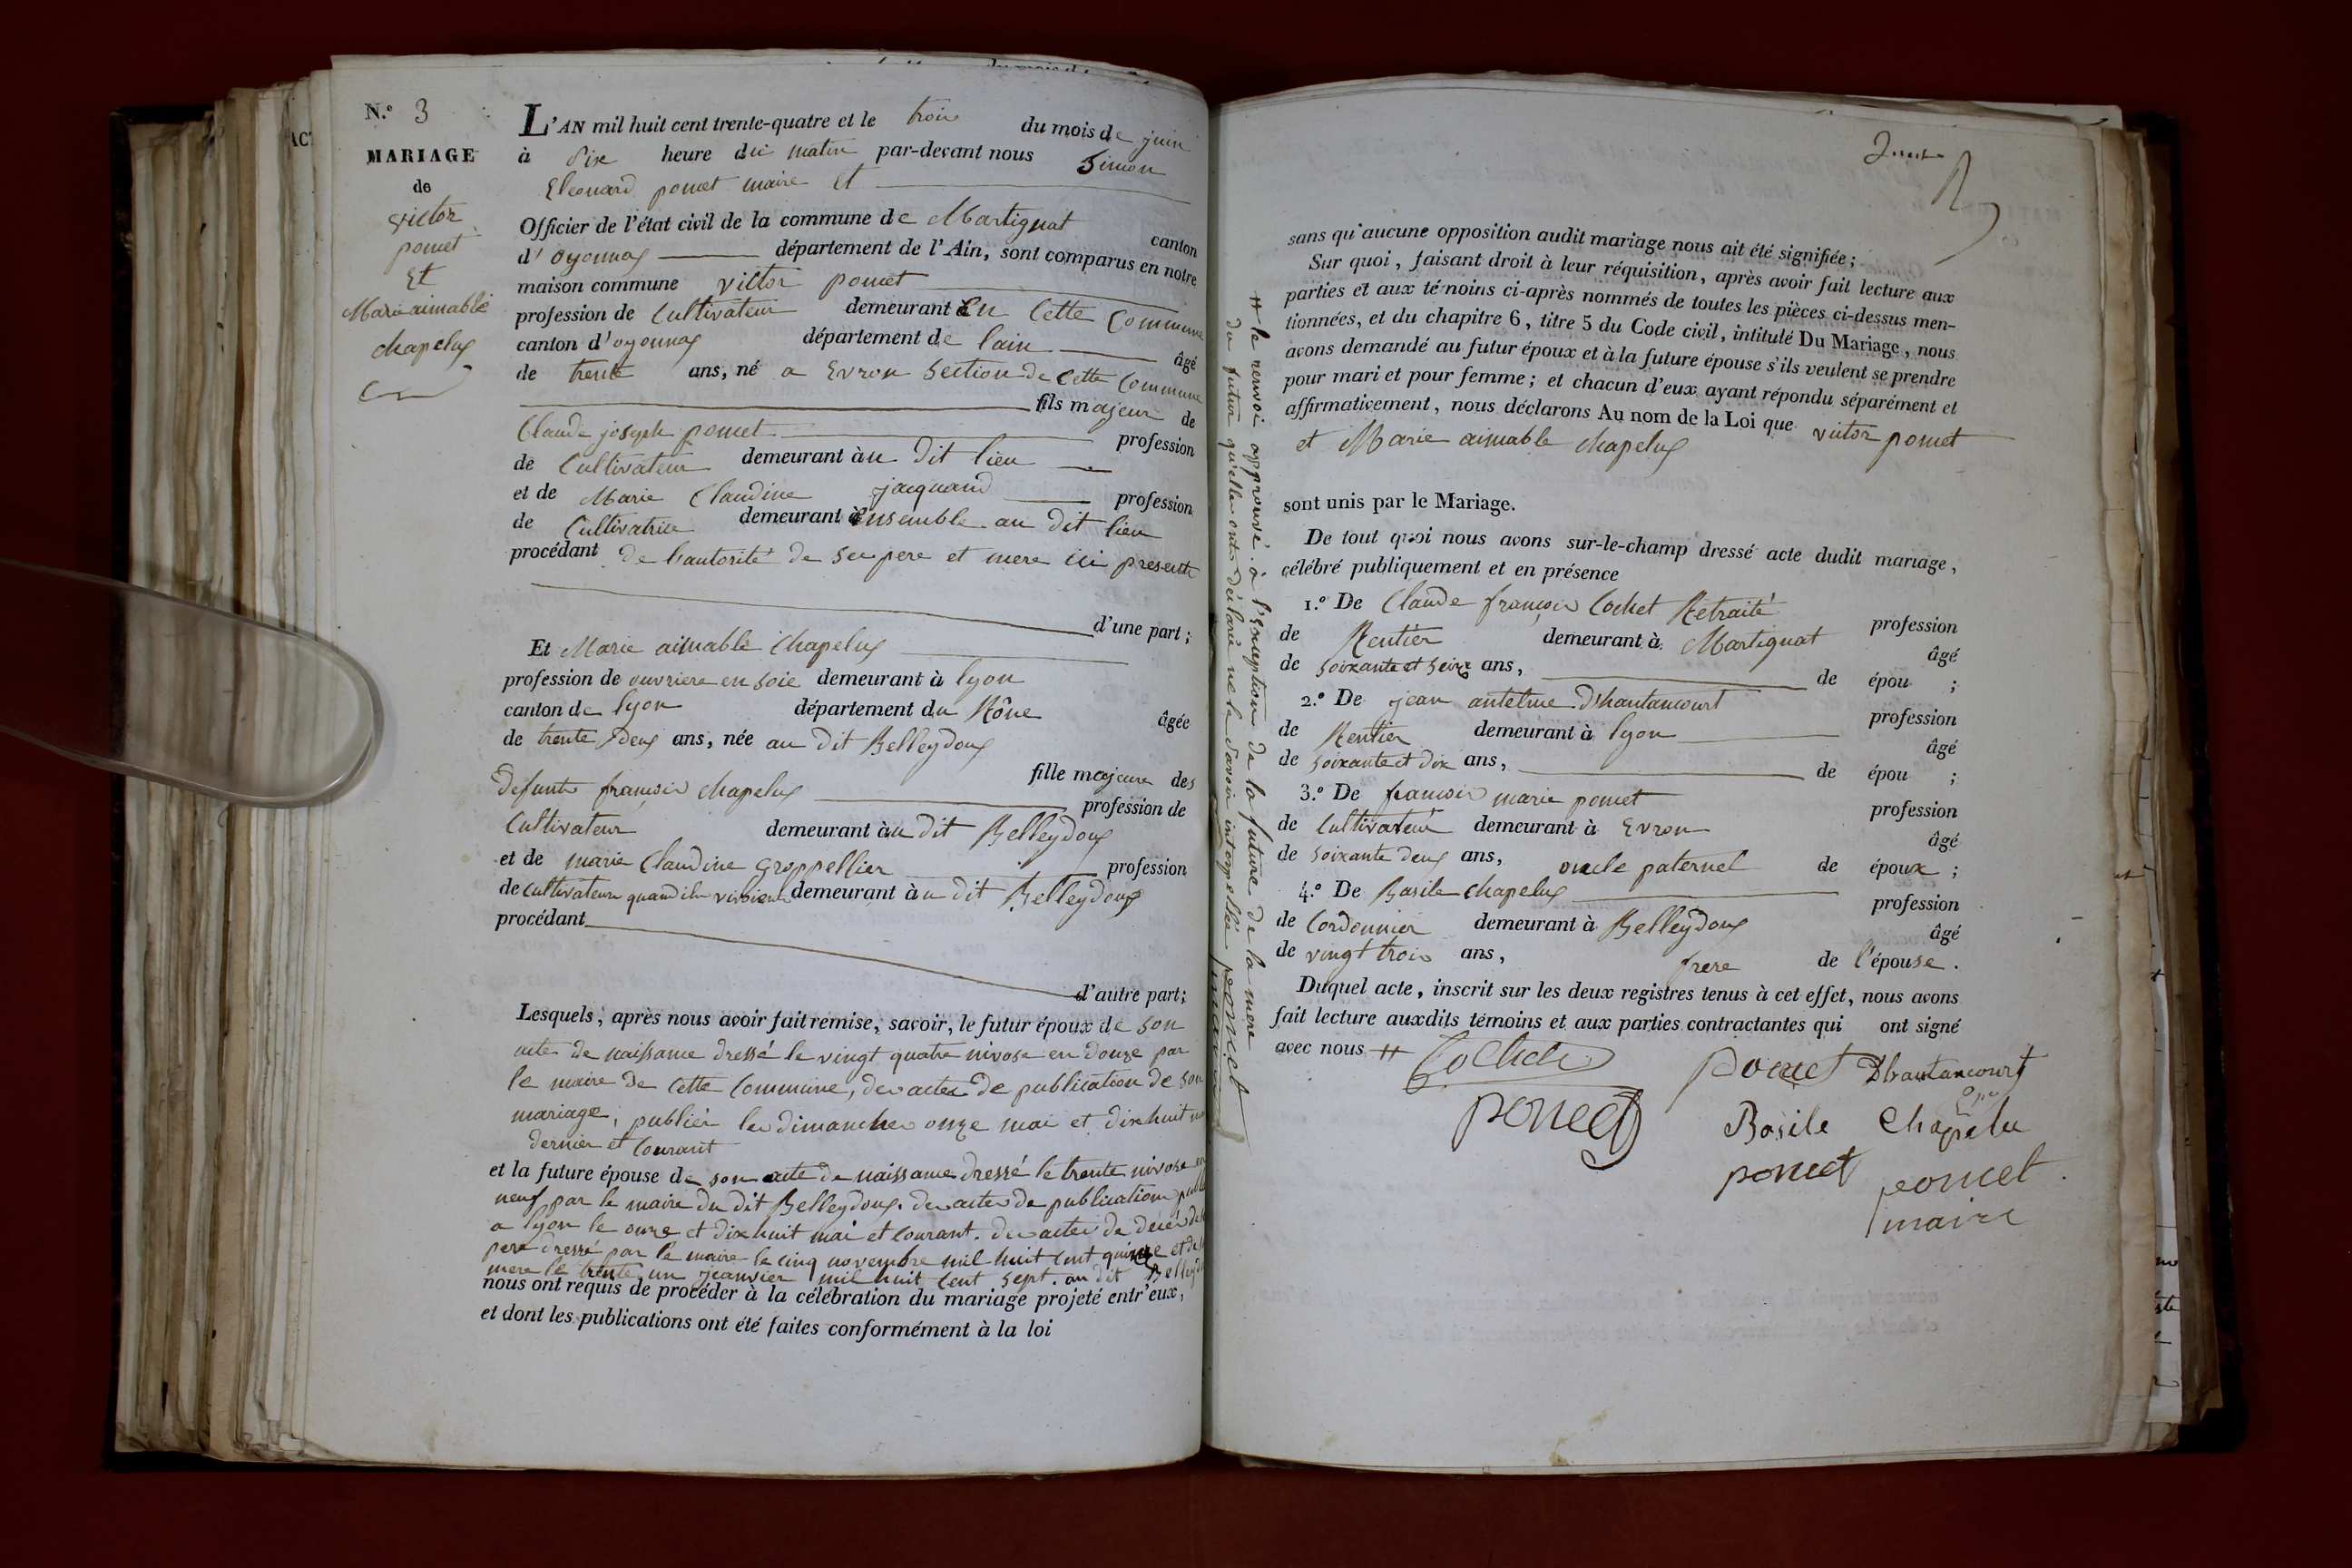 N.º 3
MARIAGE
de
victor
pomet
Et
Marie aimable
chapelux
L'AN mil huit cent trente-quatre et le trois du mois de juin
à dix heure du matin par-devant nous Simon
Eleonard pomet maire et
Officier de l'état civil de la commune de Martignat canton
d'oyonnax département de l'Ain, sont comparus en notre
maison commune victor pomet
profession de Cultivateur demeurant en Cette Commune
canton d'oyonnax département de lain âgé
de trente ans, né a Evron Section de Cette Commune
fils majeur de
Claude joseph pomet profession
de Cultivateur demeurant au dit lieu
et de Marie Claudine jacquand profession
de Cultivatrice demeurant ensemble au dit lieu
procédant de l'autorité de ses pere et mere ici presents
d'une part ;
Et Marie aimable Chapelux
profession de ouvriere en soie demeurant à lyon
canton de lyon département du Rône âgée
de trente deux ans, née au dit Belleydoux
fille majeure des
defunts françois chapelux profession de
Cultivateur demeurant au dit Belleydoux
et de marie Claudine Groppellier profession
de cultivateurs quand ils vivoient demeurant au dit Belleydoux
procédant
d'autre part;
Lesquels, après nous avoir fait remise, savoir, le futur époux de son
acte de naissance dressé le vingt quatre nivose en douze par
le maire de cette Commune, des actes de publication de son
mariage, publiés les dimanches onze mai et dixhuit
dernier et Courant
et la future épouse de son acte de naissance dressé le trente nivose en
neuf par le maire du dit Belleydoux. des actes de publication
a lyon le onze et dixhuit mai et Courant. des actes de décès de
pere dressé par le maire le cinq novembre mil huit cent quinze et de
mere le trente un jeanvier mil huit Cent Sept. au dit
nous ont requis de procéder à la célébration du mariage projeté entr'eux,
et dont les publications ont été faites conformément à la loi
# le renvoi approuvé. a l'Exception de la future de la mere
du futur qu'elle ont déclaré ne le Savoir interpellée pomet
maire
sans qu'aucune opposition audit mariage nous ait été signifiée ;
Sur quoi, faisant droit à leur réquisition, après avoir fait lecture aux
parties et aux témoins ci-après nommés de toutes les pièces ci-dessus men-
tionnées, et du chapitre 6, titre 5 du Code civil, intitulé Du Mariage, nous
avons demandé au futur époux et à la future épouse s'ils veulent se prendre
pour mari et pour femme ; et chacun d'eux ayant répondu séparément et
affirmativement, nous déclarons Au nom de la Loi que victor pomet
et Marie aimable chapelux
sont unis par le Mariage.
De tout quoi nous avons sur-le-champ dressé acte dudit mariage,
célébré publiquement et en présence
1.º De Claude françois Cochet Retraité profession
de Rentier demeurant à Martignat âgé
de soixante et seize ans, de épou ;
2.º De jean antelme Dhautancourt profession
de Rentier demeurant à lyon âgé
de soixante et dix ans, de épou ;
3.º De francois marie pomet profession
de Cultivateur demeurant à Evron âgé
de soixante deux ans, oncle paternel de époux ;
4.º De Basile Chapelux profession
de Cordonnier demeurant à Belleydoux âgé
de vingt trois ans, frere de l'épouse.
Duquel acte, inscrit sur les deux registres tenus à cet effet, nous avons
fait lecture auxdits témoins et aux parties contractantes qui ont signé
avec nous #
Cochet pomet Dhautancourt
pomet Basile Chapelu
pomet pomet
maire